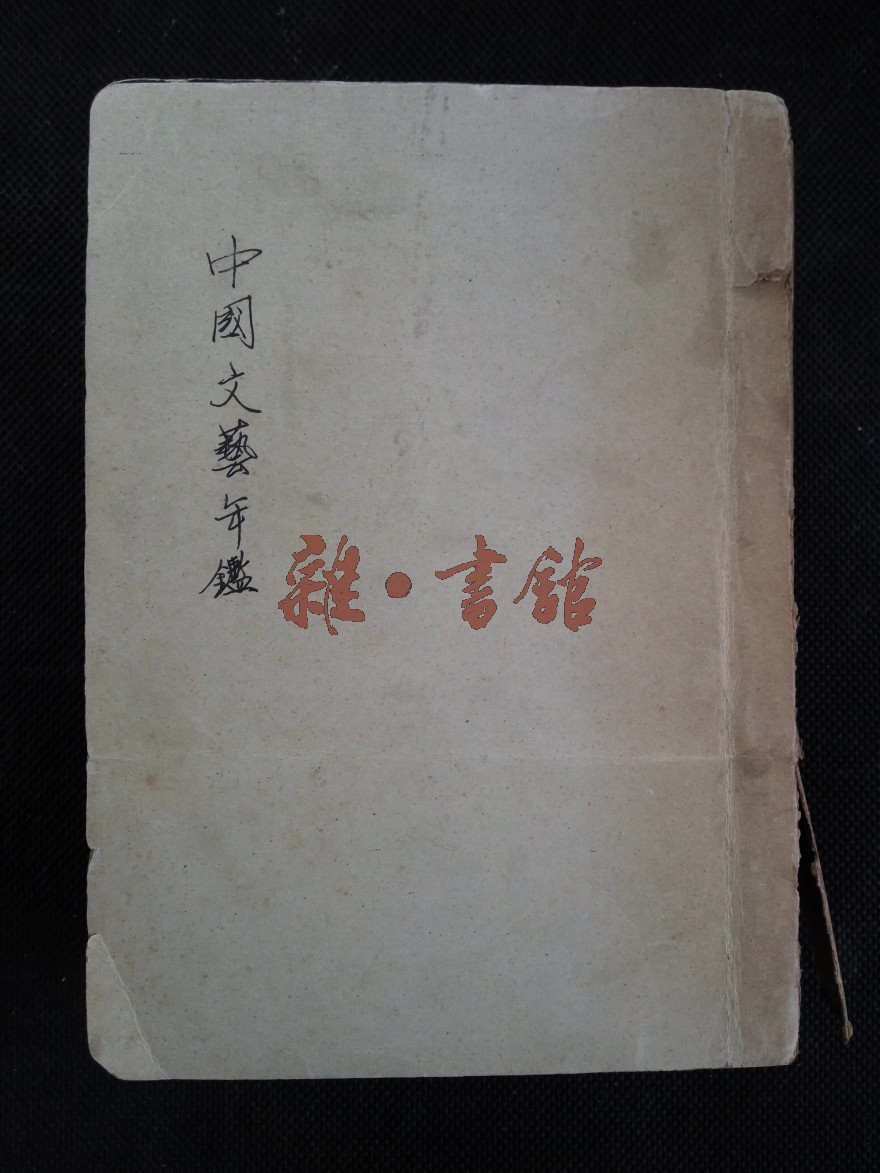 中國文藝年鑑
雜·書館